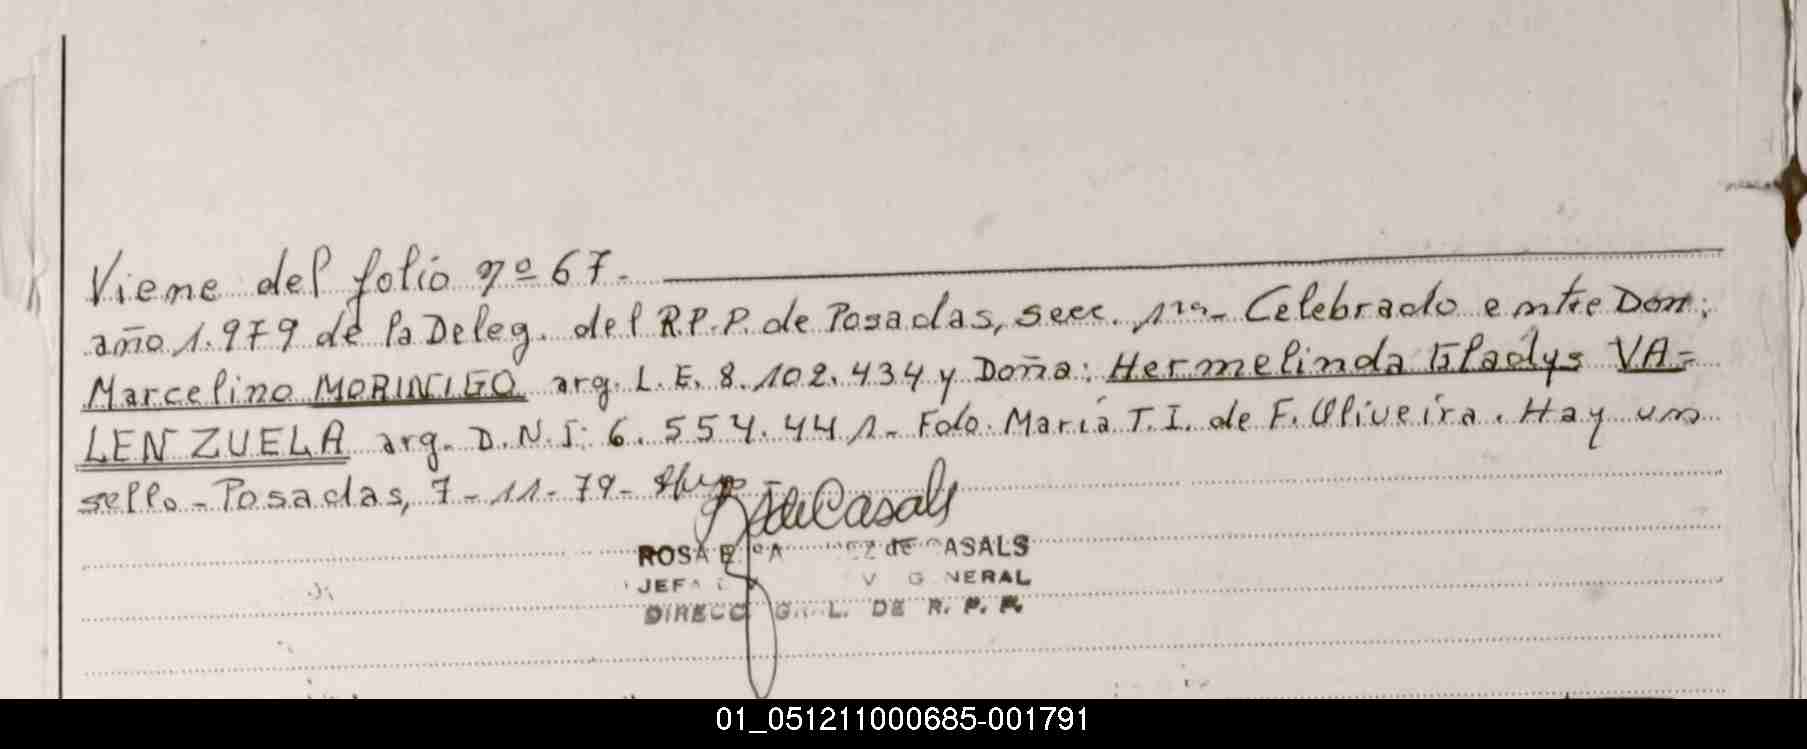 Viene del folio nº 67.-
año 1.979 de la Deleg. del R.P.P. de Posadas, secc. 1ra.- Celebrado entre Don:
Marcelino MORINIGO arg. L.E. 8.102.434 y Doña: Hermelinda Gladys VA=
LENZUELA arg. D.N.I: 6.554.441.- Fdo. María T.I. de F. Oliveira. Hay un
sello.- Posadas, 7-11-79-
de Casals
ROSA E. de CASALS
JEFA
DIRECC GRAL. DE R. P. P.
01_051211000685-001791